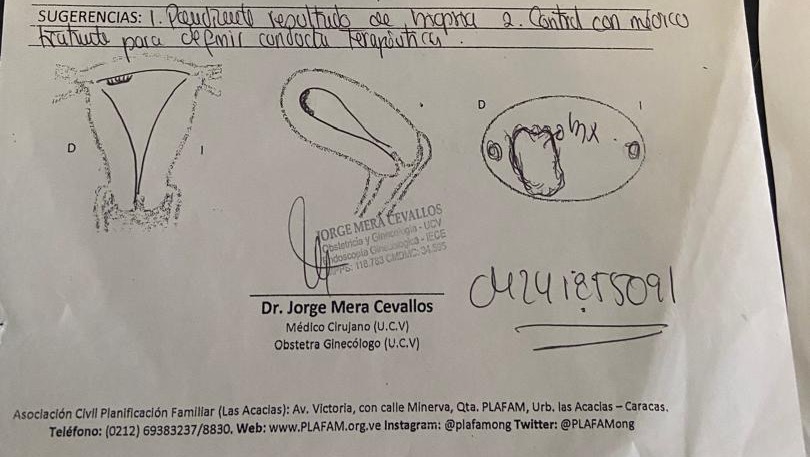 SUGERENCIAS: 1. Pendiente resultado de biopsia 2. Control con médico
tratante para definir conducta terapéutica.
D I
D I
bx
JORGE MERA CEVALLOS
Obstetricia y Ginecología - UCV
Endoscopia Ginecologica - IECE
MPPS: 118.763 CMDMC: 34.595
Dr. Jorge Mera Cevallos
Médico Cirujano (U.C.V)
Obstetra Ginecólogo (U.C.V)
04241855091
Asociación Civil Planificación Familiar (Las Acacias): Av. Victoria, con calle Minerva, Qta. PLAFAM, Urb. las Acacias – Caracas.
Teléfono: (0212) 69383237/8830. Web: www.PLAFAM.org.ve Instagram: @plafamong Twitter: @PLAFAMong